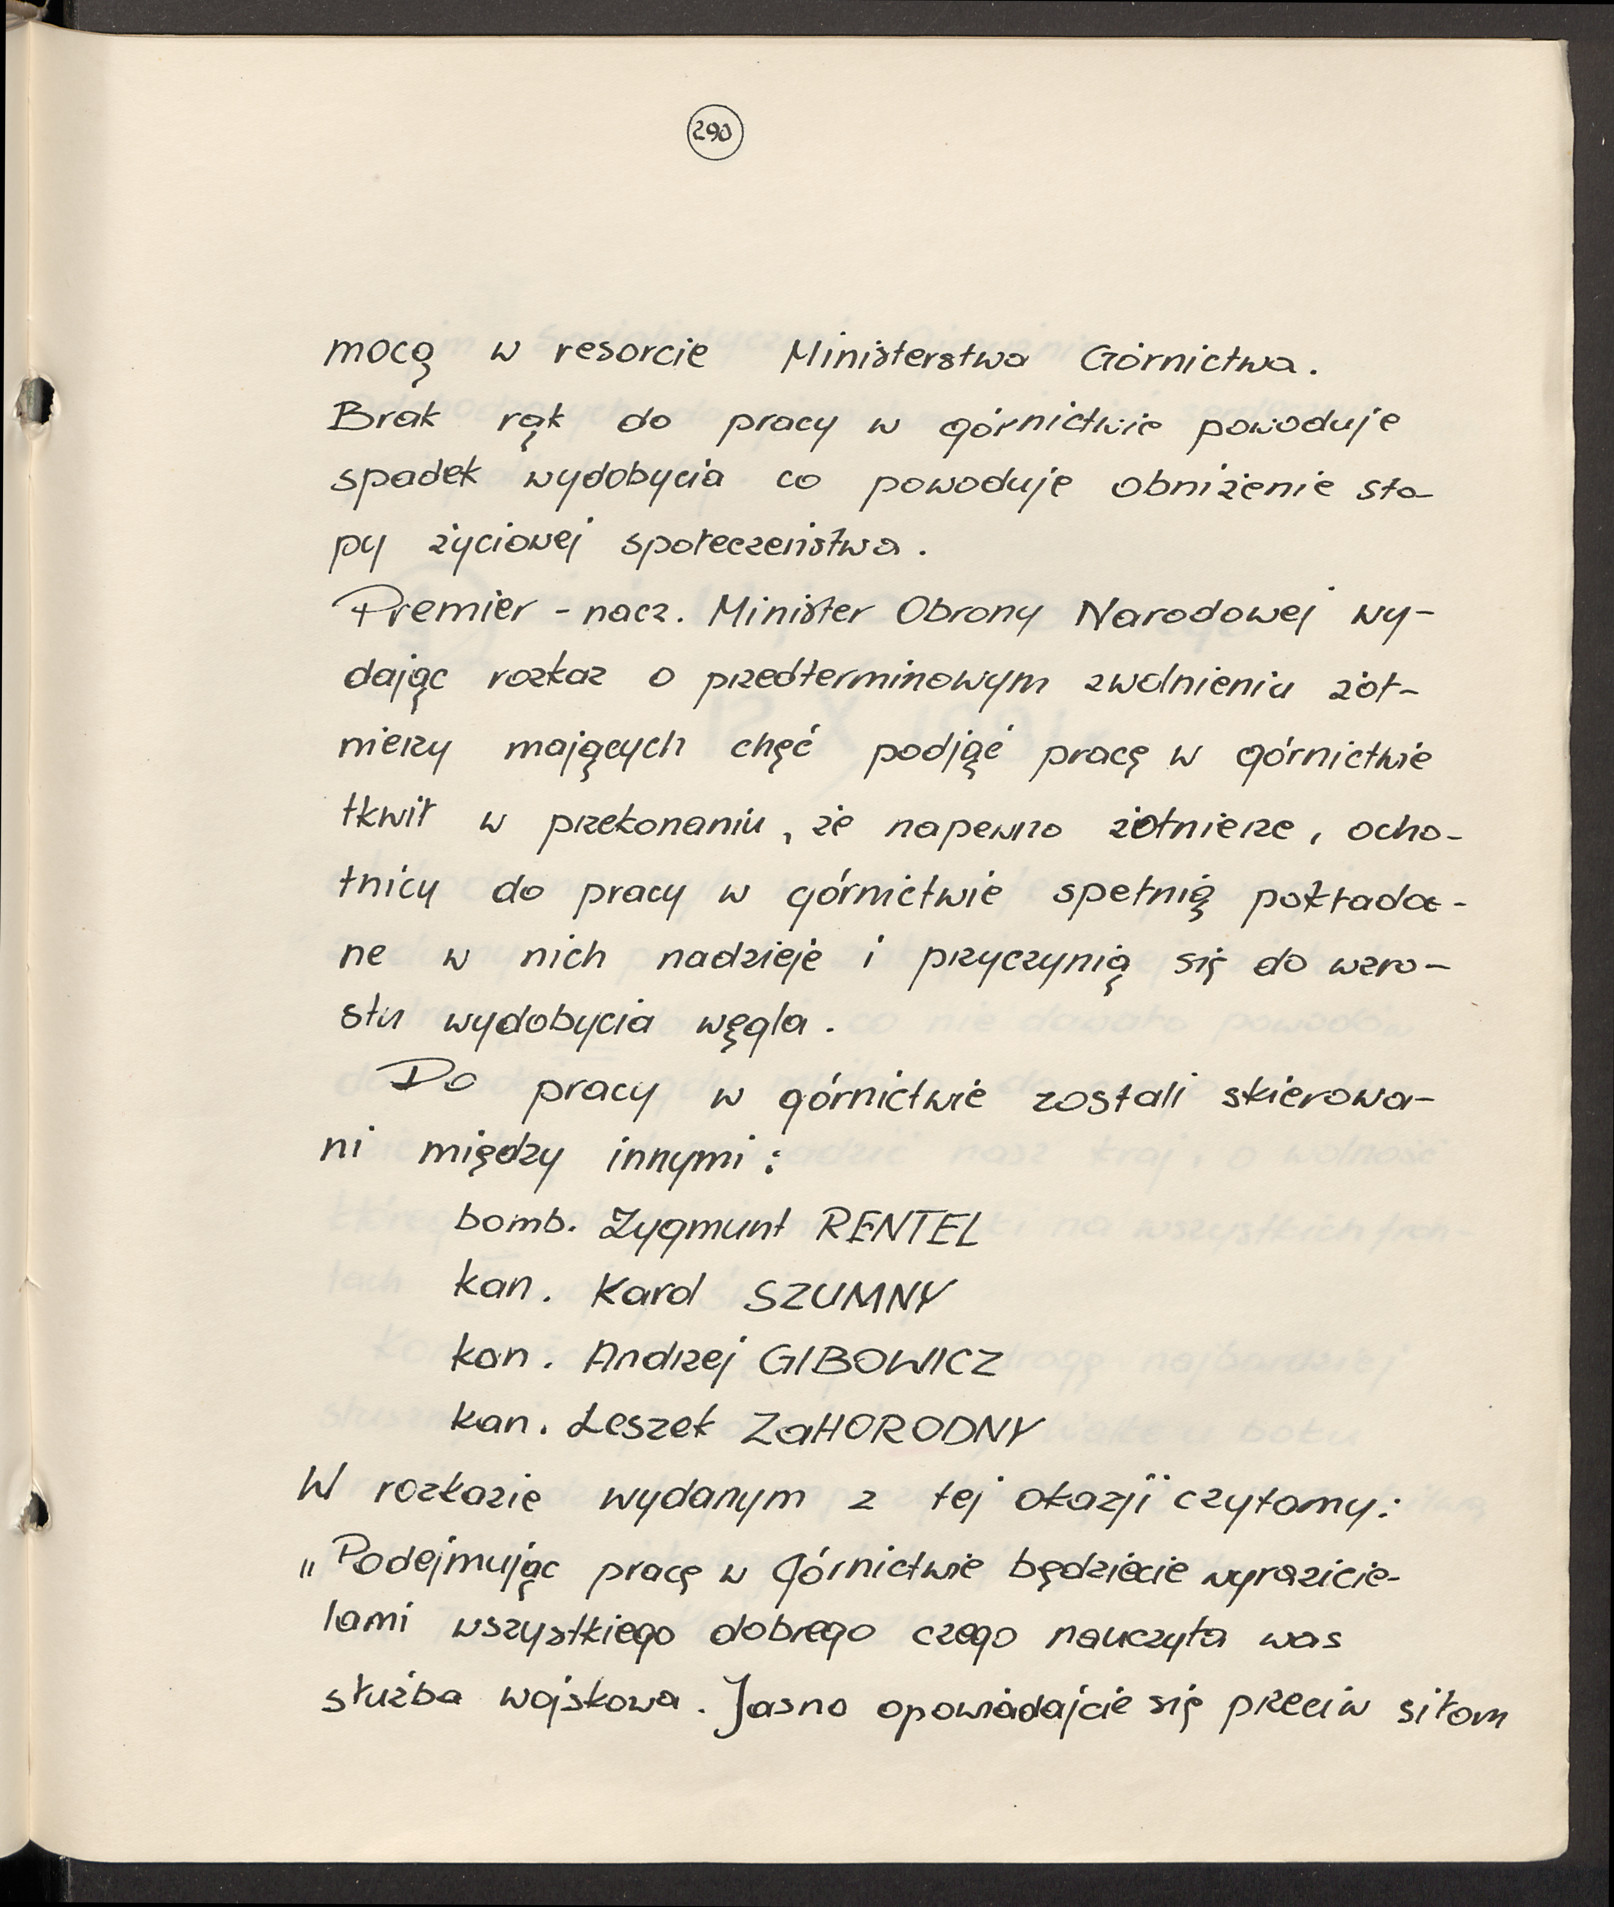 290
mocą w resorcie Ministerstwa Górnictwa.
Brak rąk do pracy w górnictwie powoduje
spadek wydobycia co powoduje obniżenie sto-
py życiowej społeczeństwa.
Premier - nacz. Minister Obrony Narodowej wy-
dając rozkaz o przedterminowym zwolnieniu żoł-
nierzy mających chęć podjąć pracę w górnictwie
tkwił w przekonaniu, że napewno żołnierze, ocho-
tnicy do pracy w górnictwie spełnią pokłada-
ne w nich nadzieje i przyczynią się do wzro-
stu wydobycia węgla.
Do pracy w górnictwie zostali skierowa-
ni między innymi:
bomb. Zygmunt RENTEL
kan. Karol SZUMNY
kan. Andrzej GIBOWICZ
kan. Leszek ZaHORODNY
W rozkazie wydanym z tej okazji czytamy:
„Podejmując pracę w Górnictwie będziecie wyrazicie-
lami wszystkiego dobrego czego nauczyła was
służba wojskowa. Jasno opowiadajcie się przeciw siłom